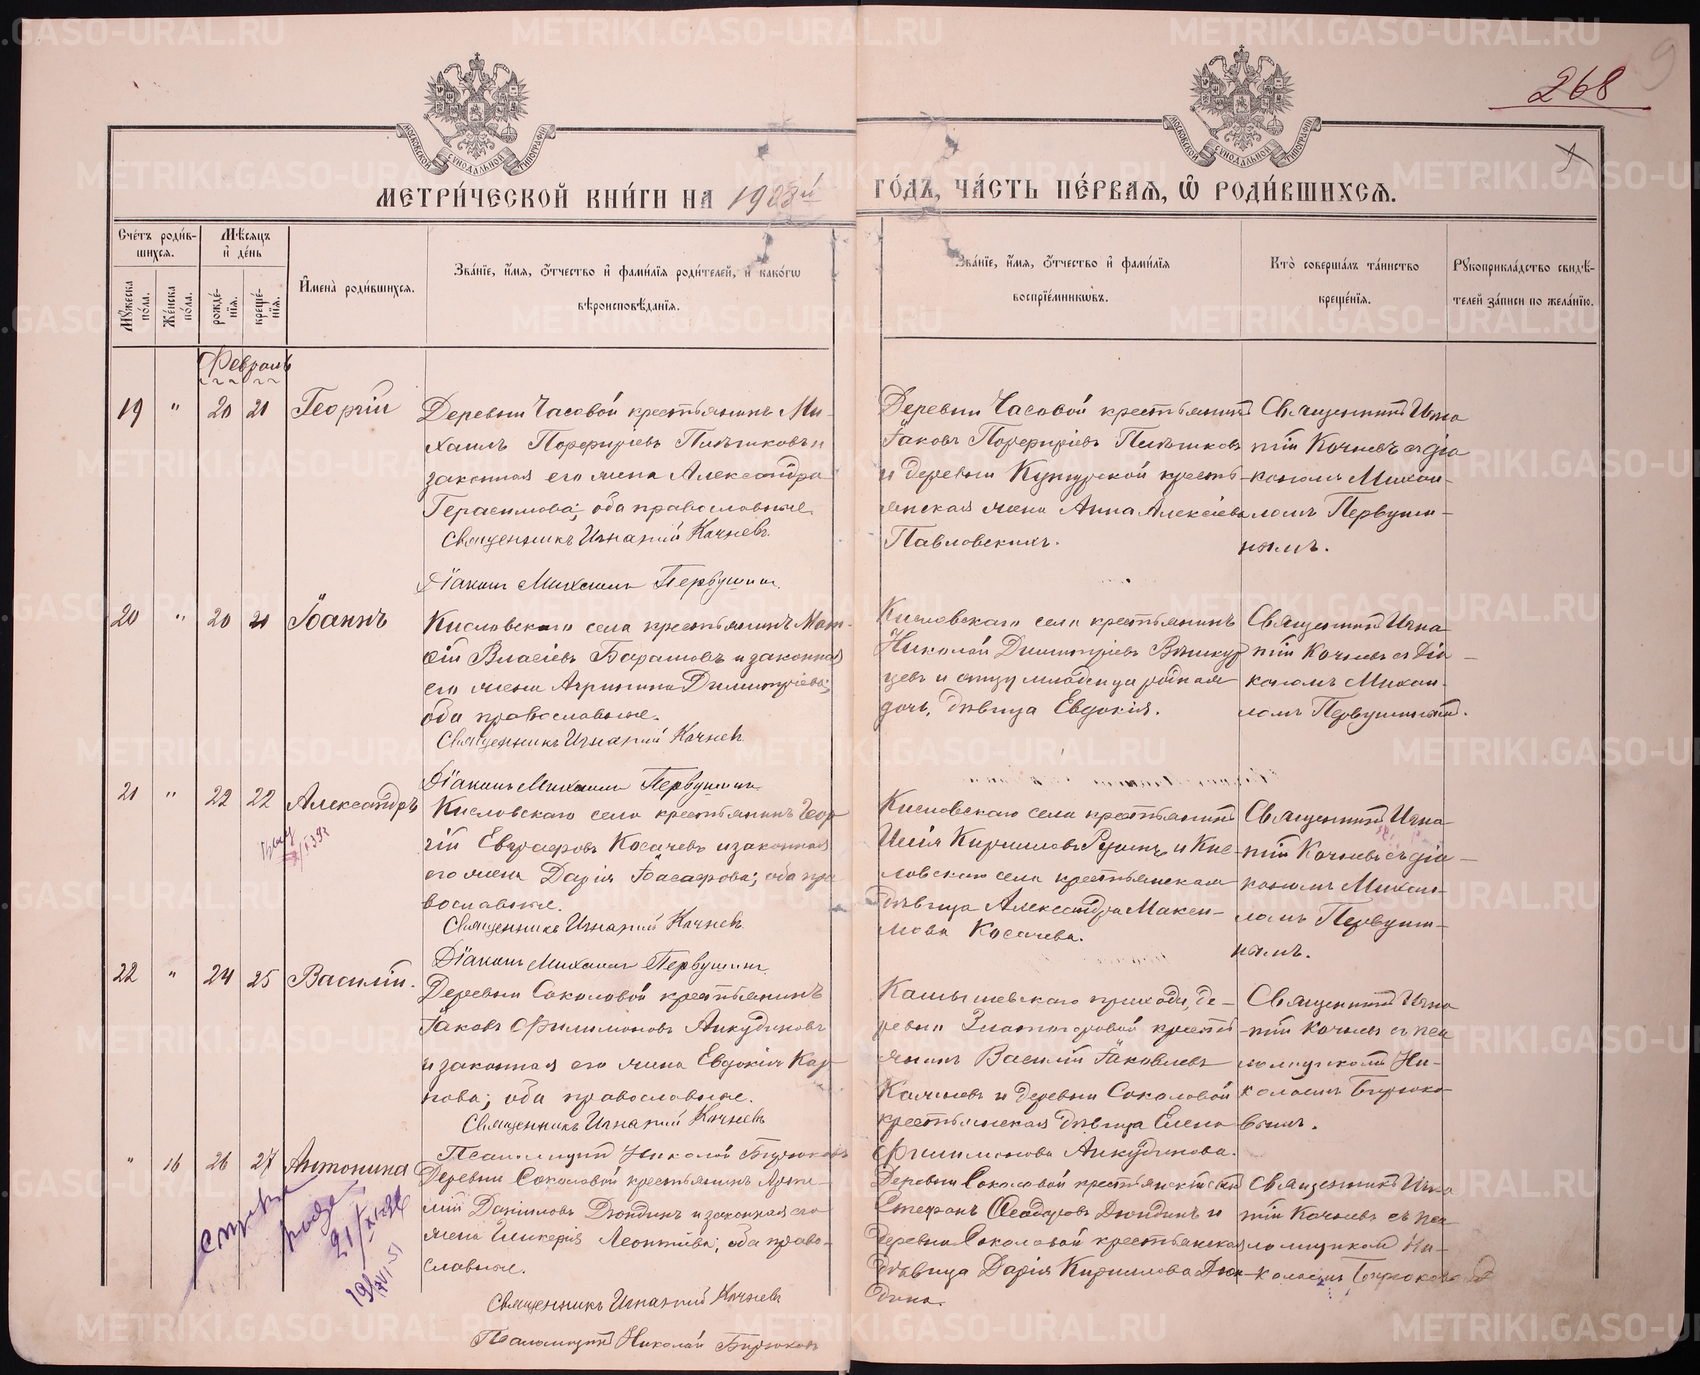 268
МЕТРИ́ЧЕСКОЙ КНИ́ГИ НА 1908й ГО́ДЪ, ЧА́СТЬ ПЕ́РВАЯ, Ѡ҆ РОДИ́ВШИХСЯ.
Сче́тъ роди́в-
шихся.
Мѣ́сяцъ
и҆ де́нь
Мꙋ́жеска
по́ла.
Же́нска
по́ла.
рожде́-
нїя.
креще́-
нїя.
И҆мена̀ роди́вшихся.
Зва́нїе, и҆́мя, ѻ҆́тчество и҆ фами́лїя роди́телей, и҆ како́гѡ
вѣроисповѣ́данїя.
Зва́нїе, и҆́мя, ѻ҆́тчество и҆ фами́лїя
воспрїе́мникѡвъ.
Кто̀ соверша́лъ та́инство
креще́нїя.
Рꙋкоприкла́дство свидѣ́-
телей за́писи по жела́нїю.
Февраль
19 " 20 21 Георгій
Деревни Часовой крестьянинъ Ми-
хаилъ Порфирьевъ и
законная его жена Александра
Герасимова; оба православные.
Священникъ Игнатий Кочневъ.
Діаконъ Михаилъ Первушинъ.
Деревни Часовой крестьянинъ
Іаковъ Порфирьевъ
и деревни крестья-
янская жена Анна Алексіева
Павловскихъ.
Священникъ Игна-
тій Кочневъ съ діа-
кономъ Михаи-
ломъ Первуши-
нымъ.
20 " 20 21 Іоаннъ
Кисловскаго села крестьянинъ Мат-
ѳій Власіевъ Барашовъ и законная
его жена Агрипина Димитріева;
оба православные.
Священникъ Игнатий Кочневъ
Діаконъ Михаилъ Первушинъ.
Кисловскаго села крестьянинъ
Николай Димитріевъ
и отцу младенца родная
дочь, дѣвица Евдокія.
Священникъ Игна-
тій Кочневъ съ діа-
кономъ Михаи-
ломъ Первушинымъ.
21 " 22 22 Александръ
Кисловскаго села крестьянинъ Геор-
гій Евграфовъ Косачевъ и законная
его жена Дарія Іоасафова; оба пра-
вославные.
Священникъ Игнатий Кочневъ.
Діаконъ Михаилъ Первушинъ.
Кисловскаго села крестьянинъ
Илія Кириловъ и Кис-
ловскаго села крестьянская
дѣвица Александра Макси-
мова Косачева.
Священникъ Игна-
тій Кочневъ съ діа-
кономъ Михаи-
ломъ Первуши-
нымъ.
22 " 24 25 Василій.
Деревни Соколовой крестьянинъ
Іаковъ Филимоновъ Анкудиновъ
и законная его жена Евдокія Кар-
пова; оба православные.
Священникъ Игнатий Кочневъ
Псаломщикъ Николай Бирюковъ
прихода, де-
ревни крестья-
янинъ Василій Іаковлевъ
и деревни Соколовой
крестьянская дѣвица Елена
Филимонова Анкудинова.
Священникъ Игна-
тій Кочневъ съ пса-
ломщикомъ Ни-
колаемъ Бирюко-
вымъ.
" 16 26 27 Антонина
Деревни Соколовой крестьянинъ
Даніиловъ Дюндинъ и законная его
жена Гликерія Леонтіева; оба право-
славные.
Священникъ Игнатий Кочневъ
Псаломщикъ Николай Бирюковъ
Деревни Соколовой крестьянскій сынъ
Стефанъ Ѳеодоровъ Дюндинъ и
деревни Соколовой крестьянская
дѣвица Дарія Кирилова Дюн-
дина.
Священникъ Игна-
тій Кочневъ съ пса-
ломщикомъ Ни-
колаемъ Бирюковымъ
METRIKI.GASO-URAL.RU